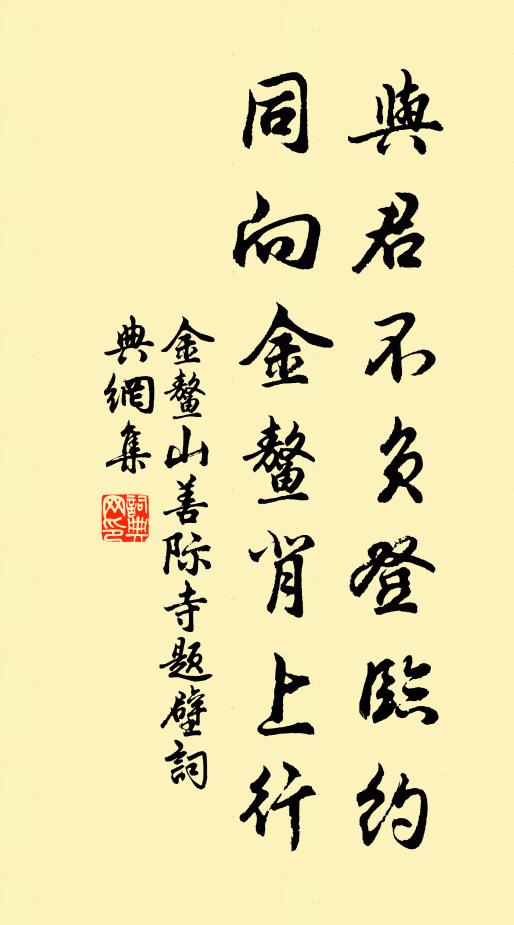 與君不負登臨約
同向金鰲背上行
金鰲山善际寺題壁詞
典網集
詞典
网印